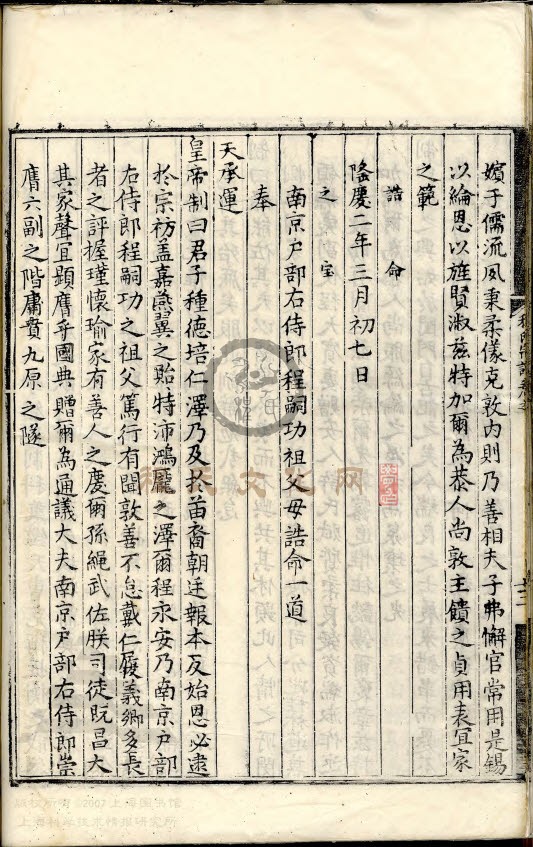 嬪于儒流夙秉柔儀克敦内則乃善相夫子弗懈官常用是錫
以綸恩以旌賢淑兹特加爾為恭人尚敦主饋之貞用表宜家
之範
誥命
隆慶二年三月初七日
之寶
南京户部右侍郎程嗣功祖父母誥命一道
奉
天承運
皇帝制曰君子種德培仁澤乃及於苗裔朝廷報本反始恩必逮
於宗祊盖嘉燕翼之貽特沛鴻龐之澤爾程永安乃南京户部
右侍郎程嗣功之祖父篤行有聞敦善不怠戴仁履義鄉多長
者之評握瑾懷瑜家有善人之慶爾孫繩武佐朕司徒既昌大
其家聲宜顯膺乎國典贈爾為通議大夫南京户部右侍郎崇
膺六副之階庸賁九原之隧
版权所有©2007上海图书馆
上海科学技术情报研究所